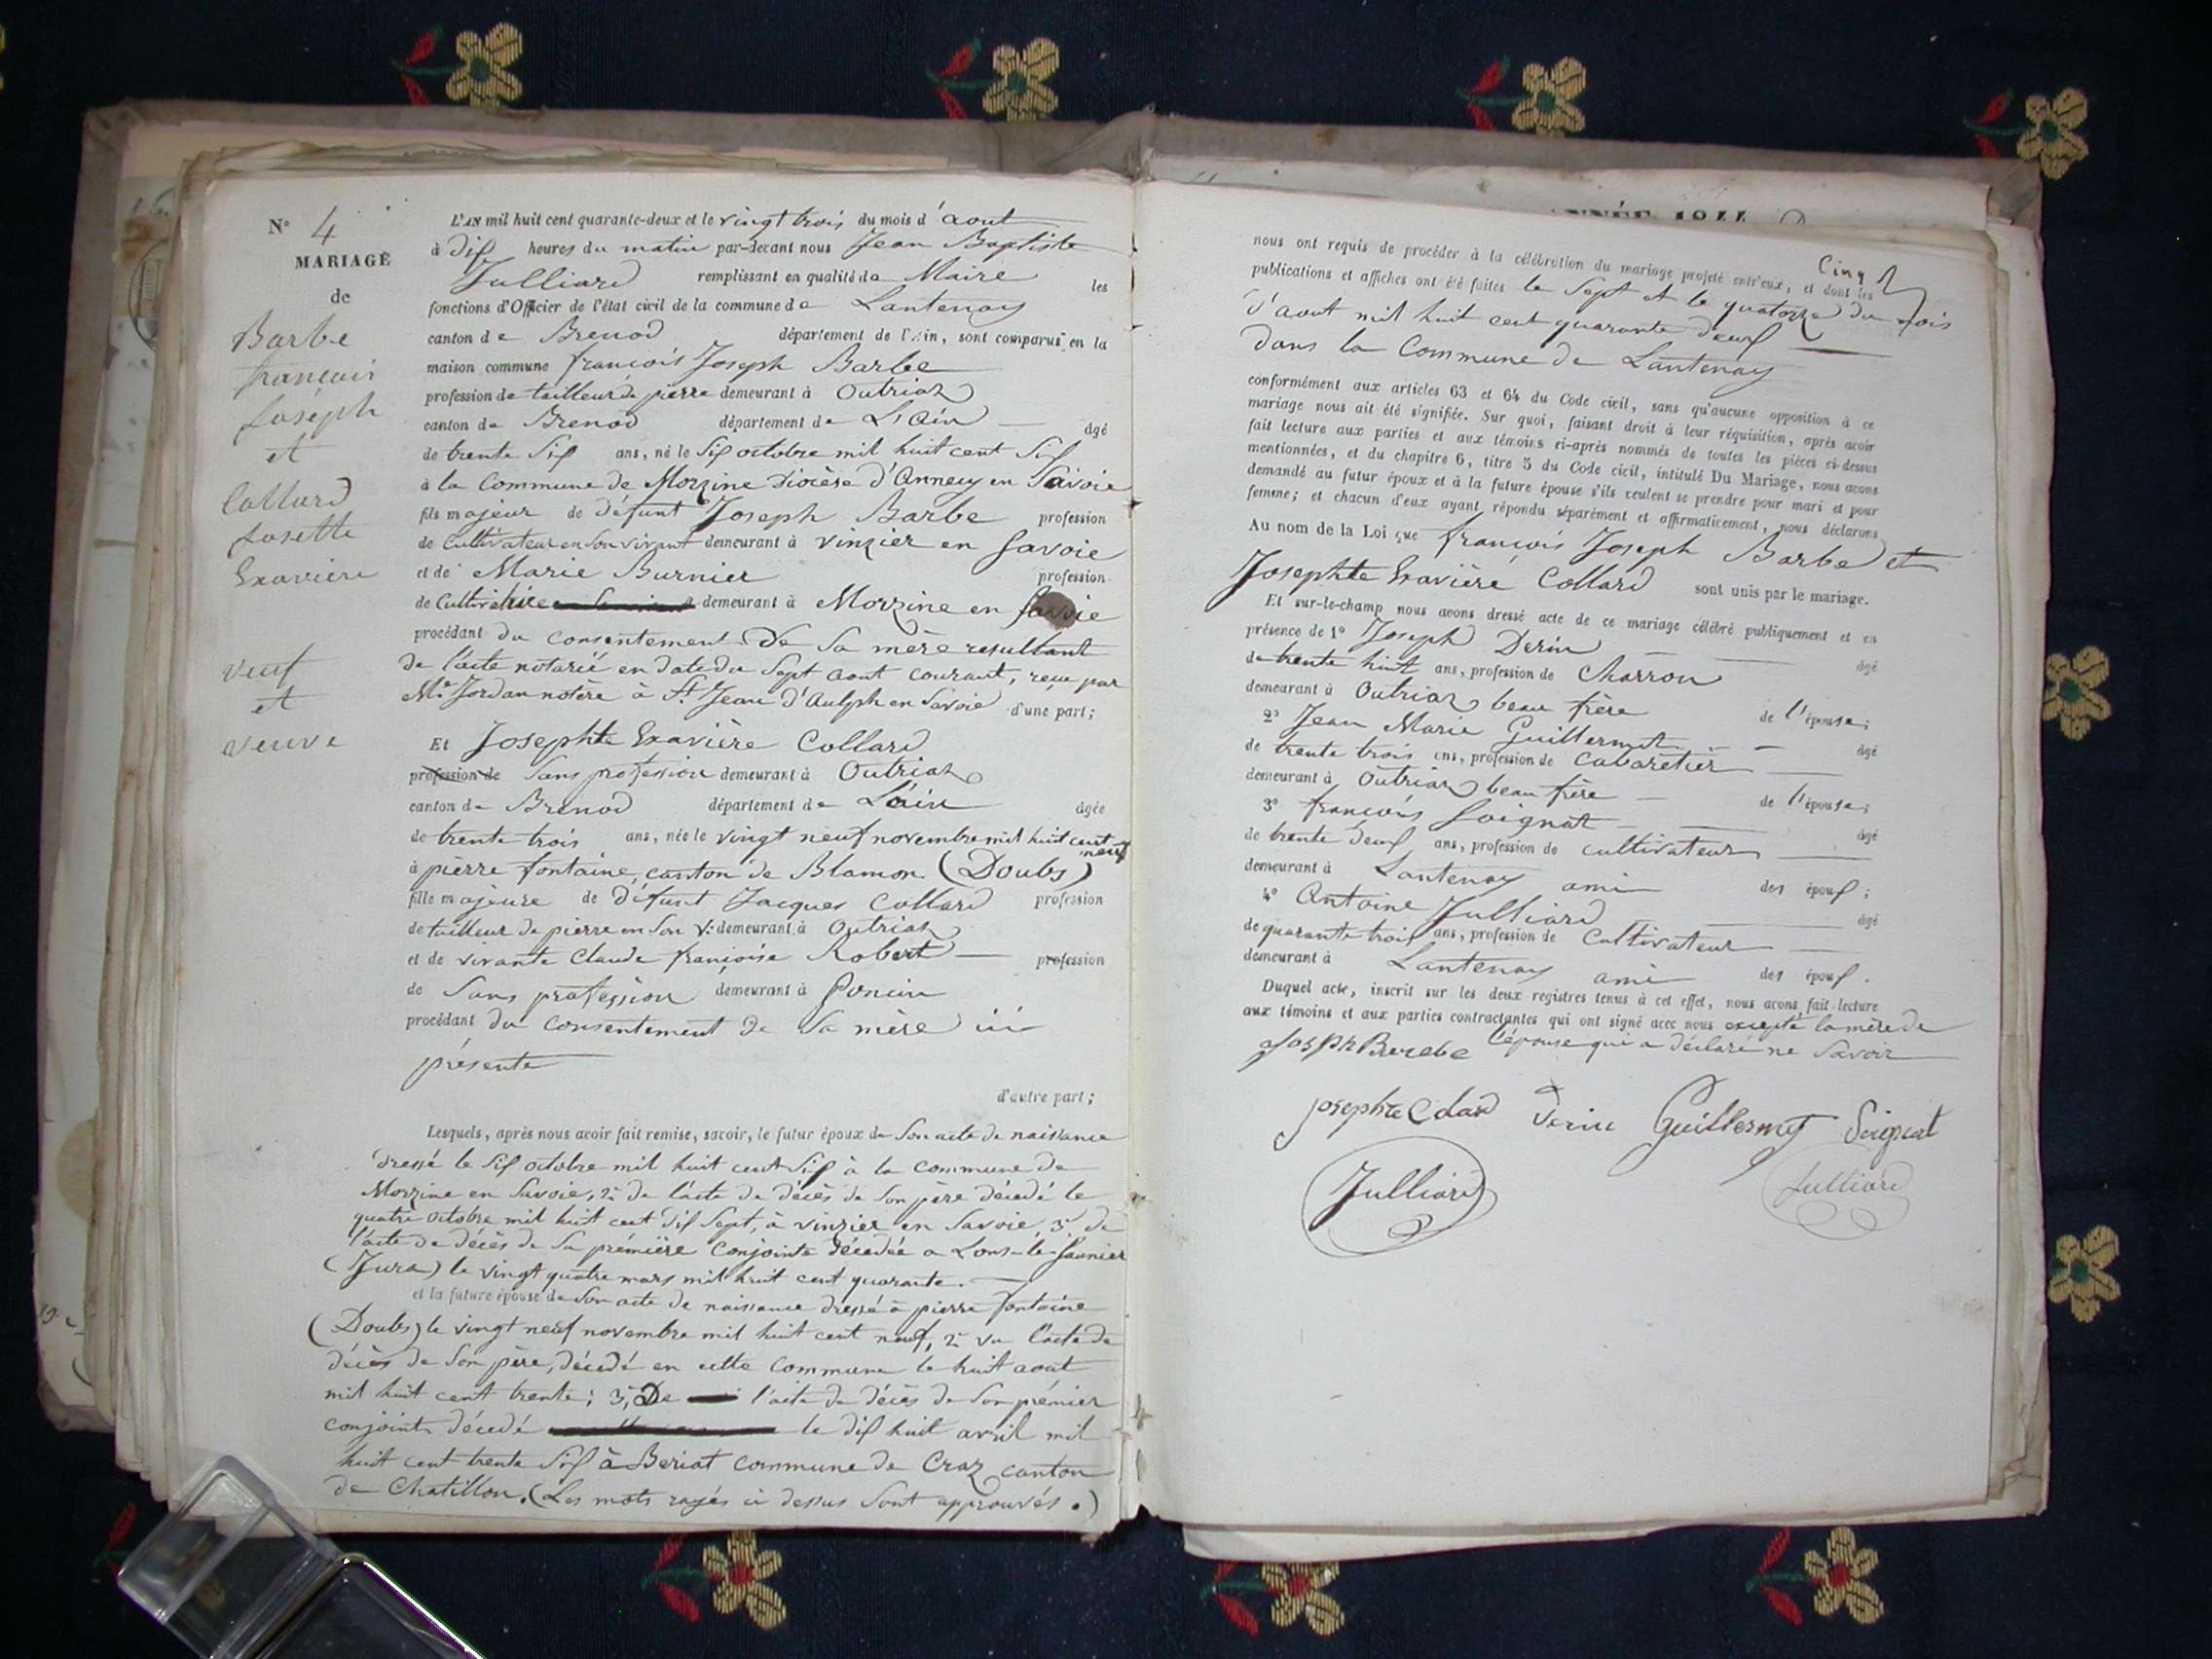 N° 4
MARIAGE
de
Barbe
françois
Joséph
et
Collard
Josette
Exavière
veuf
et
veuve
L'AN mil huit cent quarante-deux et le vingt trois du mois d'aout
à dix heures du matin par-devant nous Jean Baptiste
Julliard remplissant en qualité de Maire les
fonctions d'Officier de l'état civil de la commune de Lantenay
canton de Brenod département de l'Ain, sont comparus en la
maison commune françois Joseph Barbe
profession de tailleur de pierre demeurant à Outriaz
canton de Brenod département de L'ain âgé
de trente six ans, né le six octobre mil huit cent six
à la commune de Morzine diocèse d'Annecy en Savoie
fils majeur de défunt Joseph Barbe profession
de cultivateur en son vivant demeurant à vinzier en Savoie
et de Marie Burnier profession
de cultivatrice demeurant à Morzine en Savoie
procédant du consentement de sa mère resultant
de l'acte notarié en date du sept aout courant, reçu par
Me Jordan notère à St Jean d'Aulph en Savoie d'une part;
Et Josephte Exavière Collard
profession de sans profession demeurant à Outriaz
canton de Brenod département de L'ain âgée
de trente trois ans, née le vingt neuf novembre mil huit cent
neuf
à pièrre fontaine, canton de Blamon (Doubs)
fille majeure de défunt Jacques Collard profession
de tailleur de pierre en son v: demeurant à Outriaz
et de vivante Claude françoise Robert profession
de sans profession demeurant à Poncin
procédant du consentement de sa mère ici
présente
d'autre part;
Lesquels, après nous avoir fait remise, savoir, le futur époux de son acte de naissance
dressé le six octobre mil huit cent six à la commune de
Morzine en Savoie, 2° de l'acte de décès de son père décédé le
quatre octobre mil huit cent dix sept, à vinzier en Savoie, 3° de
l'acte de décès de sa première conjointe décédée a Lons-le-Saunier
(Jura) le vingt quatre mars mil huit cent quarante.
et la future épouse de son acte de naissance dressé à pierre fontaine
(Doubs) le vingt neuf novembre mil huit cent neuf, 2° vu l'acte de
décès de son père, décédé en cette commune le huit aout
mil huit cent trente; 3° De l'acte de décès de son prémier
conjoint décedé le dix huit avril mil
huit cent trente six à Beriat commune de Craz canton
de Chatillon. (Les mots rayés ci dessus sont approuvés.)
ANNÉE 1844
Cinq
nous ont requis de procéder à la célébration du mariage projeté entr'eux, et dont les
publications et affiches ont été faites le sept et le quatorze du mois
d'aout mil huit cent quarante deux
dans la Commune de Lantenay
conformément aux articles 63 et 64 du Code civil, sans qu'aucune opposition à ce
mariage nous ait été signifiée. Sur quoi, faisant droit à leur réquisition, après avoir
fait lecture aux parties et aux témoins ci-après nommés de toutes les pièces ci-dessus
mentionnées, et du chapitre 6, titre 5 du Code civil, intitulé Du Mariage, nous avons
demandé au futur époux et à la future épouse s'ils veulent se prendre pour mari et pour
femme; et chacun d'eux ayant répondu séparément et affirmativement, nous déclarons
Au nom de la Loi que françois Joseph Barbe et
Josephte Exavière Collard sont unis par le mariage.
Et sur-le-champ nous avons dressé acte de ce mariage célébré publiquement et en
présence de 1° Joseph Derin
de trente huit ans, profession de Charron âgé
demeurant à Outriaz beau frère de l'épouse;
2° Jean Marie Guillermet âgé
de trente trois ans, profession de cabaretier
demeurant à Outriaz beau frère de l'épouse;
3° françois Soignat âgé
de trente deux ans, profession de cultivateur
demeurant à Lantenay ami des époux;
4° Antoine Julliard âgé
de quarante trois ans, profession de Cultivateur
demeurant à Lantenay ami des époux.
Duquel acte, inscrit sur les deux registres tenus à cet effet, nous avons fait lecture
aux témoins et aux parties contractantes qui ont signé avec nous excepté la mère de
l'épouse qui a déclaré ne savoir
Josephte Colard Derin Guillermet Soignat
Julliard Julliard